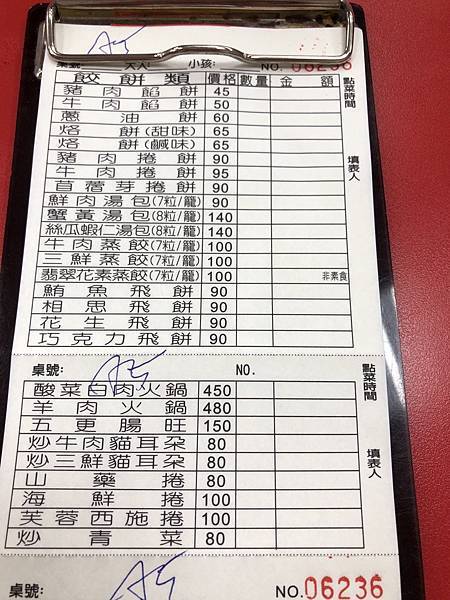 桌號: 大人 小孩: NO. 06236
餃餅類 價格 數量 金額 點菜時間
豬肉餡餅 45
牛肉餡餅 50
蔥油餅 60
烙餅(甜味) 65
烙餅(鹹味) 65
豬肉捲餅 90 填表人
牛肉捲餅 95
苜蓿芽捲餅 90
鮮肉湯包(7粒/籠) 90
蟹黃湯包(8粒/籠) 140
絲瓜蝦仁湯包(8粒/籠) 140
牛肉蒸餃(7粒/籠) 100
三鮮蒸餃(7粒/籠) 100
翡翠花素蒸餃(7粒/籠) 100 非素食
鮪魚飛餅 90
相思飛餅 90
花生飛餅 90
巧克力飛餅 90
桌號: A5 NO. 點菜時間
酸菜白肉火鍋 450
羊肉火鍋 480
五更腸旺 150
炒牛肉貓耳朵 80 填表人
炒三鮮貓耳朵 80
山藥捲 80
海鮮捲 100
芙蓉西施捲 100
炒青菜 80
桌號: A5 NO.06236